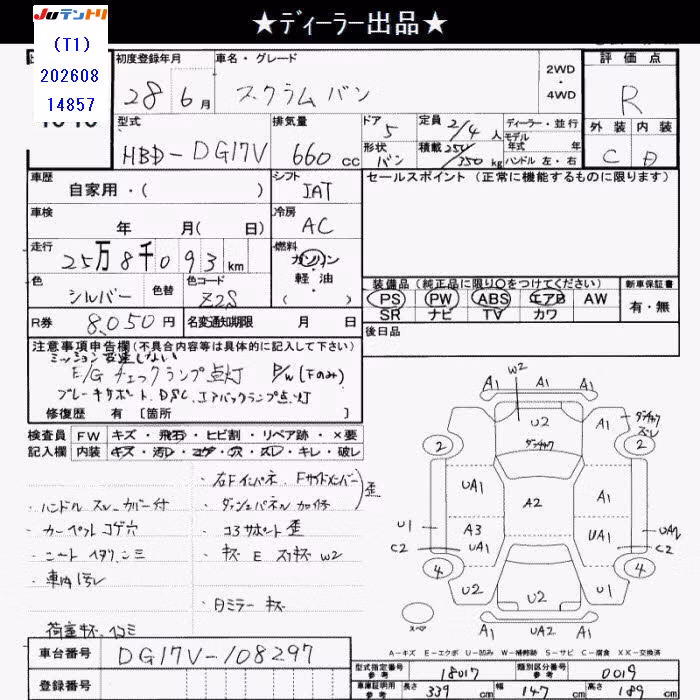 ★ディーラー出品★
JUテントリ
(T1)
202608
14857
初度登録年月
28年6月
車名・グレード
スクラムバン
2WD
・
4WD
評価点
R
型式
HBD-DG17V
排気量
660cc
ドア
5
形状
バン
定員 2/4人
積載 250/350kg
ディーラー・並行
モデル
年式 年
ハンドル 左・右
外装 内装
C D
車歴
自家用・( )
シフト
IAT
セールスポイント(正常に機能するものに限ります)
車検
年 月( 日)
冷房
AC
走行
25万8千093km
燃料
ガソリン
軽油
( )
色
シルバー
色替
色コード
Z2S
装備品(純正品に限り○をつけてください)
PS PW ABS エアB AW
SR ナビ TV カワ
新車保証書
有・無
R券 8,050円
名変通知期限 月 日
後日品
注意事項申告欄(不具合内容等は具体的に記入して下さい)
ミッション変速しない
E/G チェックランプ点灯 P/W(下のみ)
ブレーキサポート、DSC、エアバックランプ点灯
修復歴 有[箇所 ]
検査員 FW キズ・飛石・ヒビ割・リペア跡・×要
記入欄 内装 キズ・汚レ・コゲ・穴・スレ・キレ・破レ
・右Fインパネ Fサイドメンバー 歪
・ハンドル スレ カバー付
・ダッシュパネル 加修
・カーペット コゲ穴
・コアサポート 歪
・シート ヘタリ シミ
・キズ E スリキズ W2
・車内汚レ
・白ミラー キズ
荷室キズ ヘコミ
W2
A1 A1
U2
A1
2 2
UA1
A2
A1
A3
UA1
UA1
U1
C2
UA2
C2
4 4
U2
U2
U1
A1 UA2 A1
スペア
A-キズ E-エクボ U-凹み W-補修跡 S-サビ C-腐食 XX-交換済
車台番号 DG17V-108297
登録番号
型式指定番号
参考
18017
類別区分番号
参考
0019
車庫証明用
参考
長さ 339cm 幅 147cm 高さ 189cm